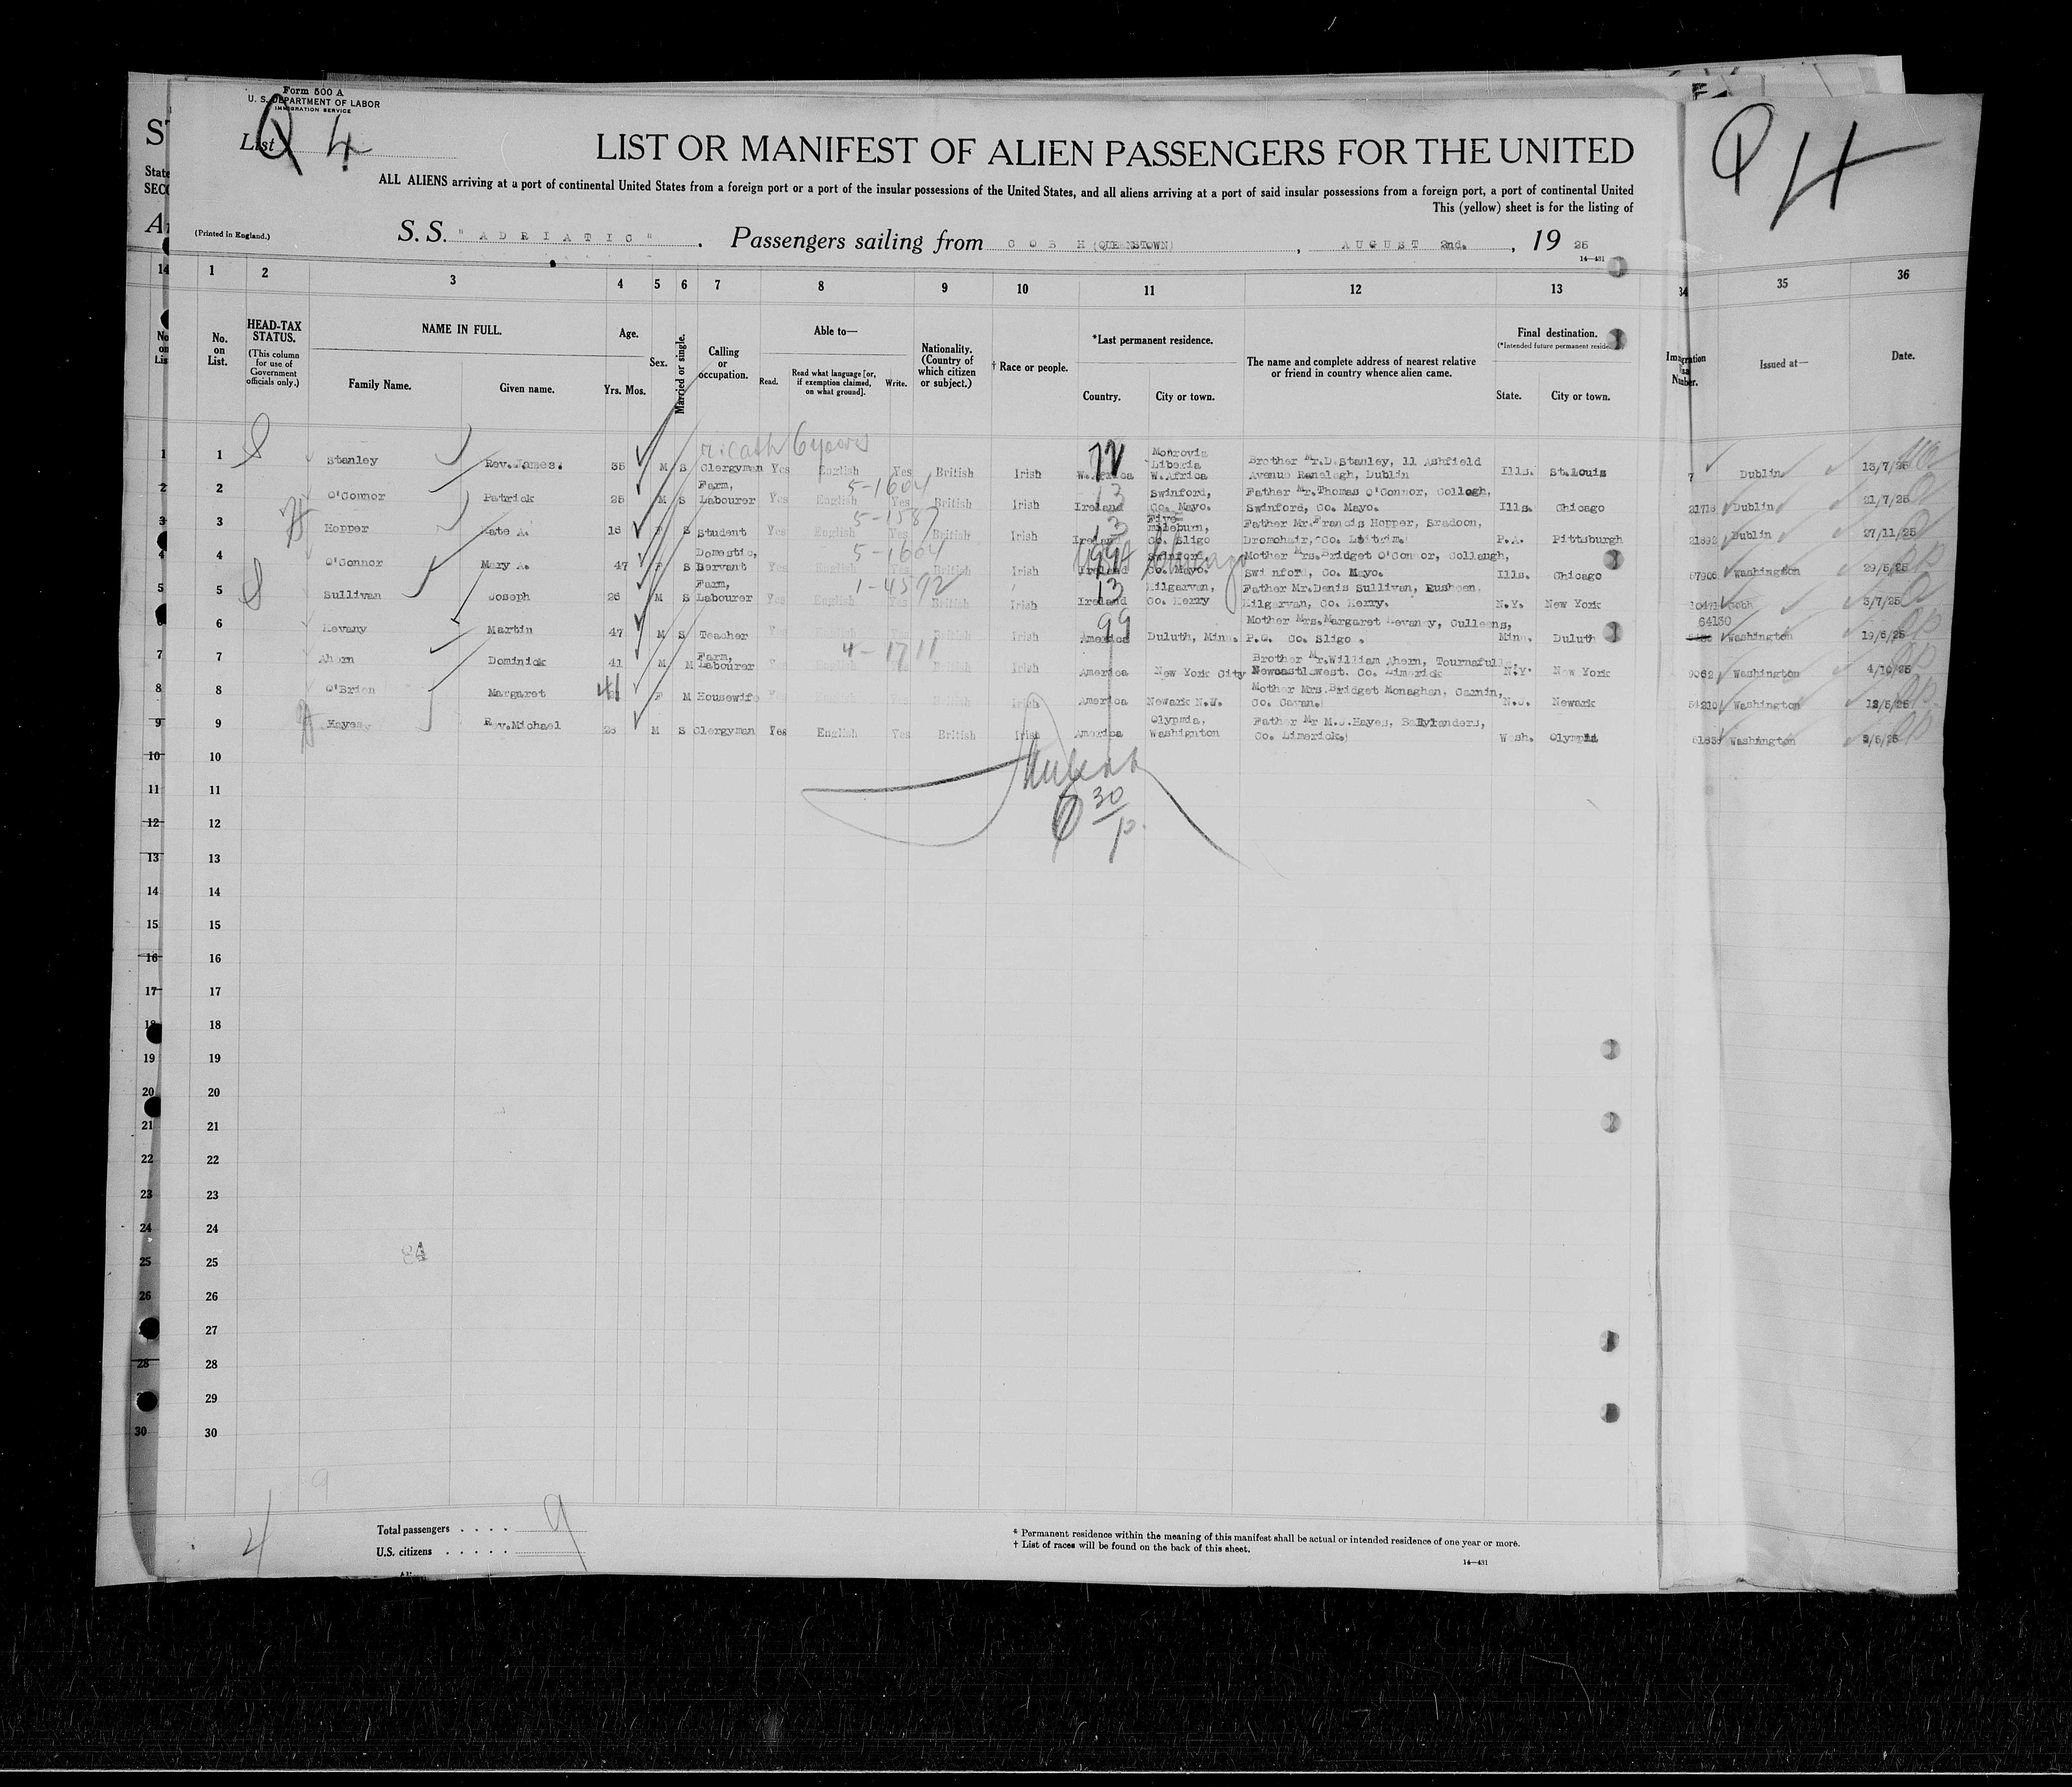 Form 500 A
U. S. DEPARTMENT OF LABOR
IMMIGRATION SERVICE
List Q 4
LIST OR MANIFEST OF ALIEN PASSENGERS FOR THE UNITED
ALL ALIENS arriving at a port of continental United States from a foreign port or a port of the insular possessions of the United States, and all aliens arriving at a port of said insular possessions from a foreign port, a port of continental United
This (yellow) sheet is for the listing of
(Printed in England.)
S. S. "ADRIATIC". Passengers sailing from COBH (QUEENSTOWN), AUGUST 2nd., 19 25
14—431
1 2 3 4 5 6 7 8 9 10 11 12 13 34 35 36
No. on List.
HEAD-TAX STATUS. (This column for use of Government officials only.)
NAME IN FULL.
Family Name. Given name.
Age. Yrs. Mos.
Sex.
Married or single.
Calling or occupation.
Able to—
Read. Read what language [or, if exemption claimed, on what ground]. Write.
Nationality. (Country of which citizen or subject.)
† Race or people.
*Last permanent residence.
Country. City or town.
The name and complete address of nearest relative or friend in country whence alien came.
Final destination.
(*Intended future permanent reside
State. City or town.
Issued at—
Date.
1 Stanley Rev. James. 35 M S Clergyman Yes English Yes British Irish W. Africa Monrovia Liberia W. Africa Brother Mr. D. Stanley, 11 Ashfield Avenue Ranelagh, Dublin Ills. St. Louis 7 Dublin 13/7/25
2 O'Connor Patrick 25 M S Farm, Labourer Yes English Yes British Irish Ireland Swinford, Co. Mayo. Father Mr. Thomas O'Connor, Collagh, Swinford, Co. Mayo. Ills. Chicago 21718 Dublin 21/7/25
5-1604
3 Hopper Kate A. 18 F S Student Yes English Yes British Irish Ireland Co. Sligo Father Mr. Francis Hopper, Sradoon, Dromohair, Co. Leitrim. P.A. Pittsburgh 21892 Dublin 27/11/25
5-1587
4 O'Connor Mary A. 47 F S Domestic, Servant Yes English Yes British Irish Ireland Swinford, Co. Mayo. Mother Mrs. Bridget O'Connor, Collaugh, Swinford, Co. Mayo. Ills. Chicago 57906 Washington 29/5/25
5-1604
USA Chicago
5 Sullivan Joseph 26 M S Farm, Labourer Yes English Yes British Irish Ireland Kilgarvan, Co. Kerry Father Mr. Denis Sullivan, Rusheen, Kilgarvan, Co. Kerry. N.Y. New York Cobh 3/7/25
1-4592
6 Levany Martin 47 M S Teacher Yes English Yes British Irish America Duluth, Minn. Mother Mrs. Margaret Levancy, Culleens, P.O. Co. Sligo. Minn. Duluth 64130 Washington 19/6/25
7 Ahern Dominick 41 M M Farm, Labourer Yes English Yes British Irish America New York City Brother Mr. William Ahern, Tournafull Newcastlewest. Co. Limerick N.Y. New York 9062 Washington 4/10/25
4-1711
8 O'Brien Margaret 41 F M Housewife Yes English Yes British Irish America Newark N.J. Mother Mrs. Bridget Monaghan, Carnin, Co. Cavan. N.J. Newark 54210 Washington
9 Hayes Rev. Michael M S Clergyman Yes English Yes British Irish America Olympia, Washignton Father Mr M.J. Hayes, Ballylanders, Co. Limerick. Wash. Olympia Washington
10
11
12
13
14
15
16
17
18
19
20
21
22
23
24
25
26
27
28
29
30
9
4
Total passengers . . . . 9
U.S. citizens . . . . .
* Permanent residence within the meaning of this manifest shall be actual or intended residence of one year or more.
† List of races will be found on the back of this sheet.
14—431